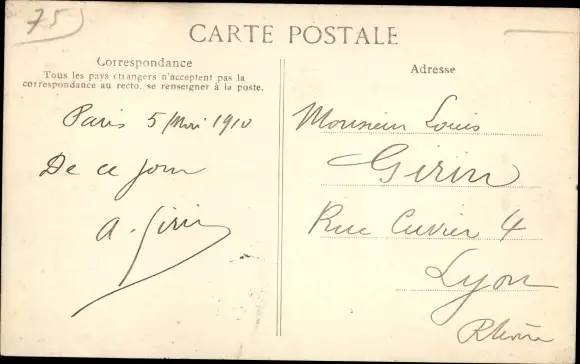 75
CARTE POSTALE
Correspondance
Tous les pays étrangers n'acceptent pas la
correspondance au recto, se renseigner à la poste.
Paris 5/Mai 1910
De ce jour
A. Girin
Adresse
Monsieur Louis
Girin
Rue Cuvier 4
Lyon
Rhône